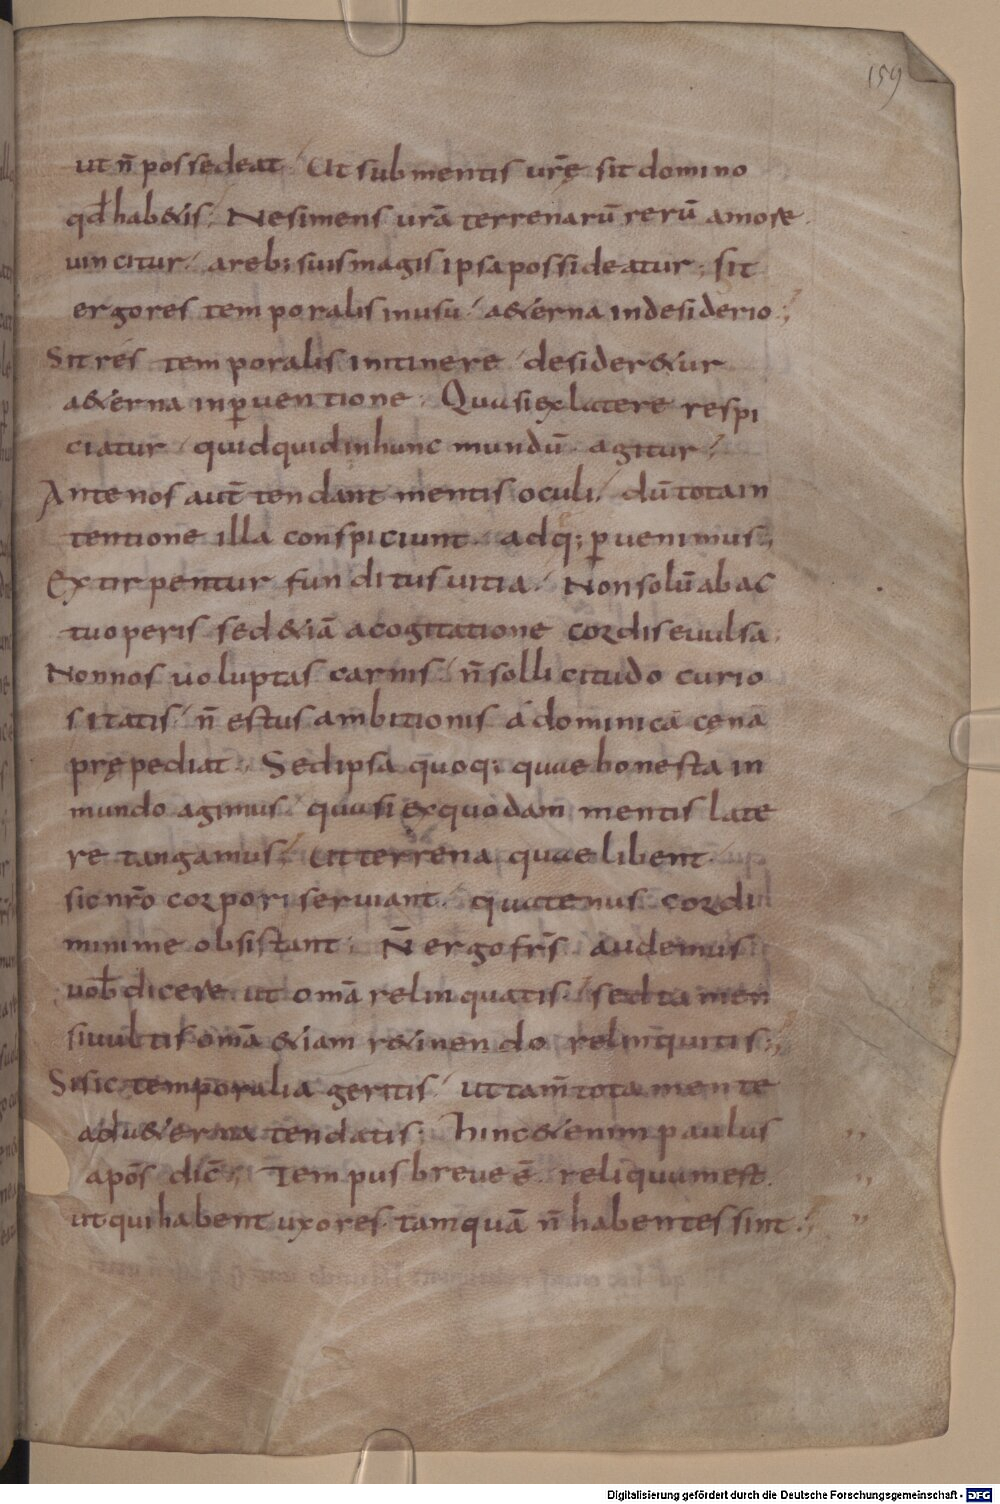 159
ut n̄ possedeat; Ut sub mentis ur̄ę sit domino
qđ hab&is; Ne si mens urā terrenarū rerū amore
uincitur, a reb; suis magis ipsa possideatur; sit
ergo res temporalis in usu, a&erna in desiderio;
Sit res temporalis in itinere, desider&ur
a&erna in ꝑuentione. Quasi ex latere respi
ciatur, quidquid in hunc mundū agitur;
Ante nos aut̄ tendant mentis oculi, dū tota in
tentione illa conspiciunt, ad q; ꝑuenimus;
Extirpentur funditus uitia, Non solū ab ac
tu operis sed &iā a cogitatione cordis euulsa;
Non nos uoluptas carnis, n̄ sollicitudo curio
sitatis, n̄ estus ambitionis a dominica cęna
prępediat. Sed ipsa quoq; quae honesta in
mundo agimus, quasi ex quodam mentis late
re tangamus, Ut terrena quae libent
sic nr̄o corpori seruiant, quatenus cordi
minime obsistant. N̄ ergo fr̄s audemus
uob̄ dicere ut omā relinquatis, sed tamen
si uultis omā &iam r&inendo relinquitis;
Si sic temporalia geritis, ut tam̄ tota mente
ad a&erna tendatis; Hinc &enim paulus
apōs dic̄; Tempus breue ē, reliquum est
ut qui habent uxores tamquā n̄ habentes sint;
Digitalisierung gefördert durch die Deutsche Forschungsgemeinschaft - DFG